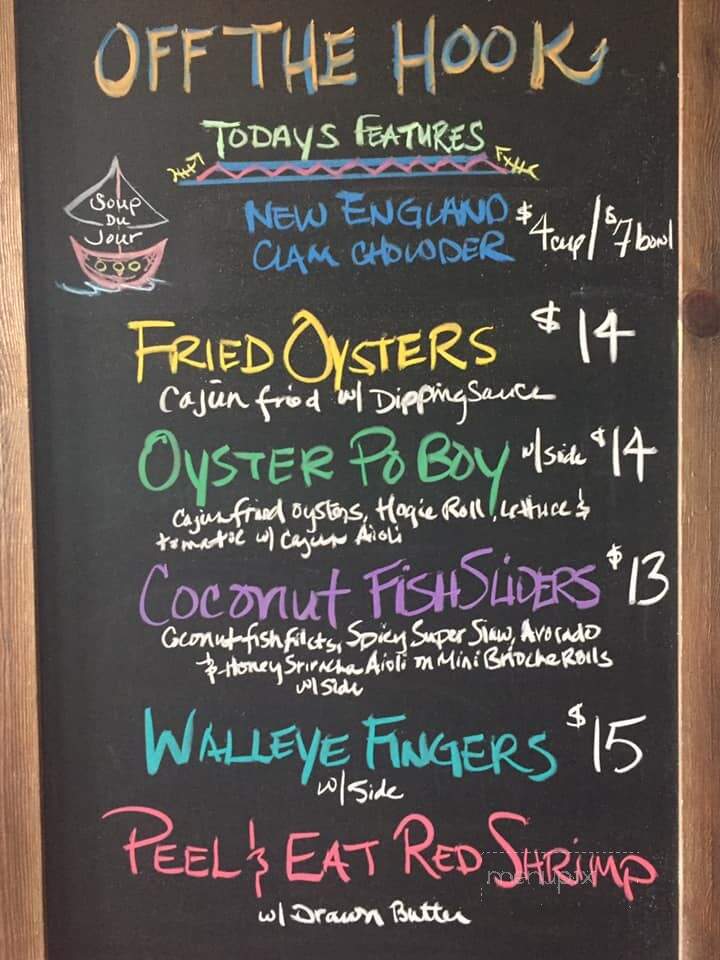 OFF THE HOOK
TODAYS FEATURES
Soup
Du
Jour
NEW ENGLAND
CLAM CHOWDER
$4 cup / $7 bowl
FRIED OYSTERS $14
Cajun fried w/ Dipping Sauce
OYSTER PO BOY w/ side $14
Cajun fried oysters, Hogie Roll, lettuce &
tomatoe w/ Cajun Aioli
Coconut FISH SLIDERS $13
Coconut fish filets, Spicy Super Slaw, Avocado
& Honey Sriracha Aioli on Mini Brioche Rolls
w/ Side
WALLEYE FINGERS $15
w/ Side
PEEL & EAT RED SHRIMP
menupix
w/ Drawn Butter